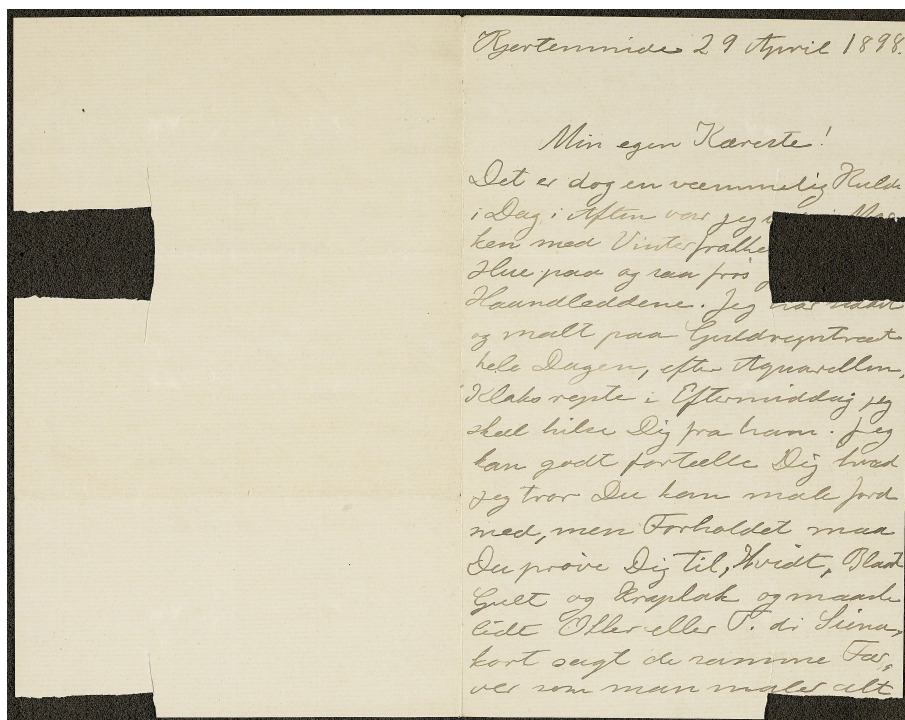 Kjerteminde 29 April 1898.
Min egen Kæreste!
Det er dog en væmmelig Kulde
i Dag, i Aften var jeg
ken med Vinterfrakke
Hue paa og saa frøs
Haandleddene. Jeg har siddet
og malt paa Guldregntræet
hele Dagen, efter Aquarellen,
Klaks rejste i Eftermiddag jeg
skal hilse Dig fra ham. Jeg
kan godt fortælle Dig hvad
jeg tror Du kan male Jord
med, men Forholdet maa
Du prøve Dig til, Hvidt, Blaat
Gult og Kraplak og maaske
lidt Okker eller T. di Siena,
kort sagt de samme Far,
ver som man maler alt